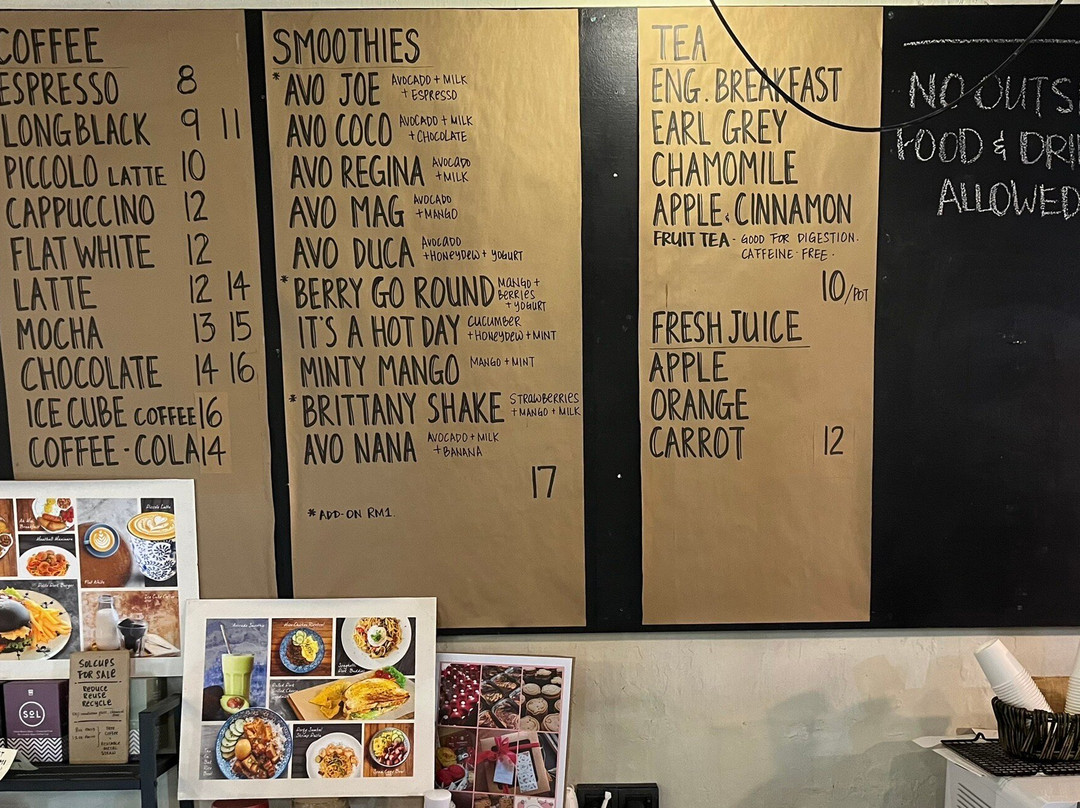 COFFEE
ESPRESSO 8
LONG BLACK 9 11
PICCOLO LATTE 10
CAPPUCCINO 12
FLAT WHITE 12
LATTE 12 14
MOCHA 13 15
CHOCOLATE 14 16
ICE CUBE COFFEE 16
COFFEE-COLA 14
SMOOTHIES
* AVO JOE AVOCADO + MILK
+ ESPRESSO
AVO COCO AVOCADO + MILK
+ CHOCOLATE
AVO REGINA AVOCADO
+ MILK
AVO MAG AVOCADO
+ MANGO
AVO DUCA AVOCADO
+ HONEYDEW + YOGURT
* BERRY GO ROUND MANGO +
BERRIES
+ YOGURT
IT'S A HOT DAY CUCUMBER
+ HONEYDEW + MINT
MINTY MANGO MANGO + MINT
* BRITTANY SHAKE STRAWBERRIES
+ MANGO + MILK
AVO NANA AVOCADO + MILK
+ BANANA
17
* ADD-ON RM1.
TEA
ENG. BREAKFAST
EARL GREY
CHAMOMILE
APPLE & CINNAMON
FRUIT TEA - GOOD FOR DIGESTION.
CAFFEINE-FREE.
10/POT
FRESH JUICE
APPLE
ORANGE
CARROT 12
NO OUTS
FOOD & DRI
ALLOWED
Piccolo Latte
Flat White
Ice Cube Coffee
SOLCUPS
FOR SALE
REDUCE
REUSE
RECYCLE
SOL
Avocado Smoothie